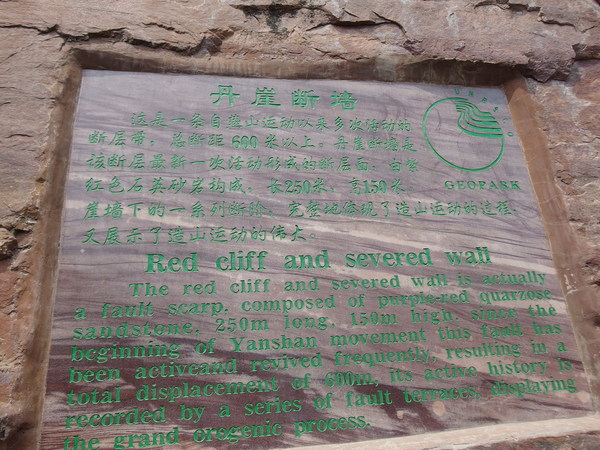 丹崖断墙
这是一条自燕山运动以来多次活动的
断层带，总断距600米以上。丹崖断墙是
该断层最新一次活动形成的断层面，由紫
红色石英砂岩构成，长250米，高150米，
崖墙下的一系列断阶，完整地体现了造山运动的过程，
又展示了造山运动的伟大。
GEOPARK
Red cliff and severed wall
The red cliff and severed wall is actually
a fault scarp, composed of purple-red quarzose
sandstone, 250m long, 150m high, since the
beginning of Yanshan movement this fault has
been activeand revived frequently, resulting in a
total displacement of 600m, its active history is
recorded by a series of fault terraces, displaying
the grand orogenic process.